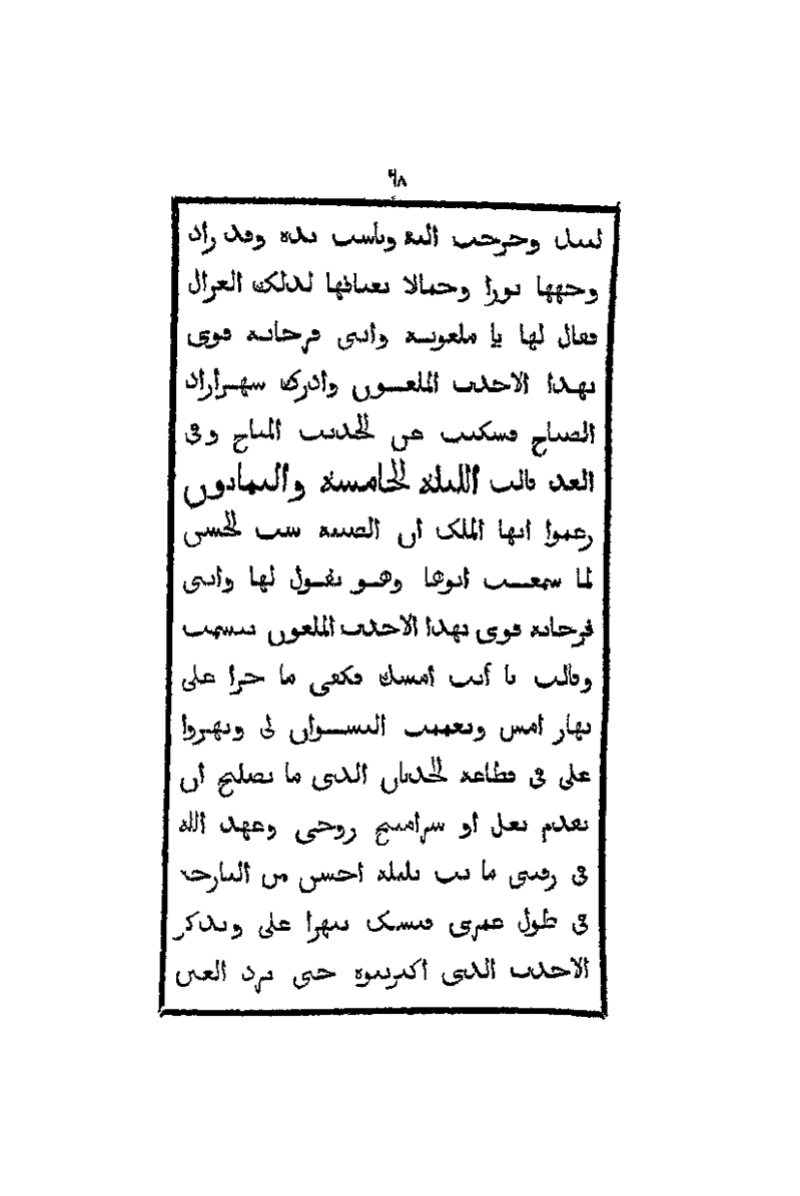 ٩٨
وخرجت اليه وباست يده وقد زاد
وجهها نورا وجمالا بعناقها لذلك الغزال
فقال لها يا ملعونة وانتى فرحانة قوى
بهذا الاحدب الملعون وادرك شهرازاد
الصباح فسكتت عن الحديث المباح وفى
الغد قالت الليلة الخامسة والثمانون
زعموا ايها الملك ان الصبية ست الحسن
لما سمعت ابوها وهو يقول لها وانتى
فرحانة قوى بهذا الاحدب الملعون تبسمت
وقالت يا أبت أمسك فكفى ما جرا على
نهار امس وتعييب النسوان لى ويهزوا
على فى قطاعة الحدبان الذى ما يصلح ان
يقدم نعل او سرامیج زوجى وعهد الله
فى رقبتى ما بت بليلة احسن من البارحة
فى طول عمرى فبسك تتهزا على وتذكر
الاحدب الذى اكتريتوه حتى ترد العين